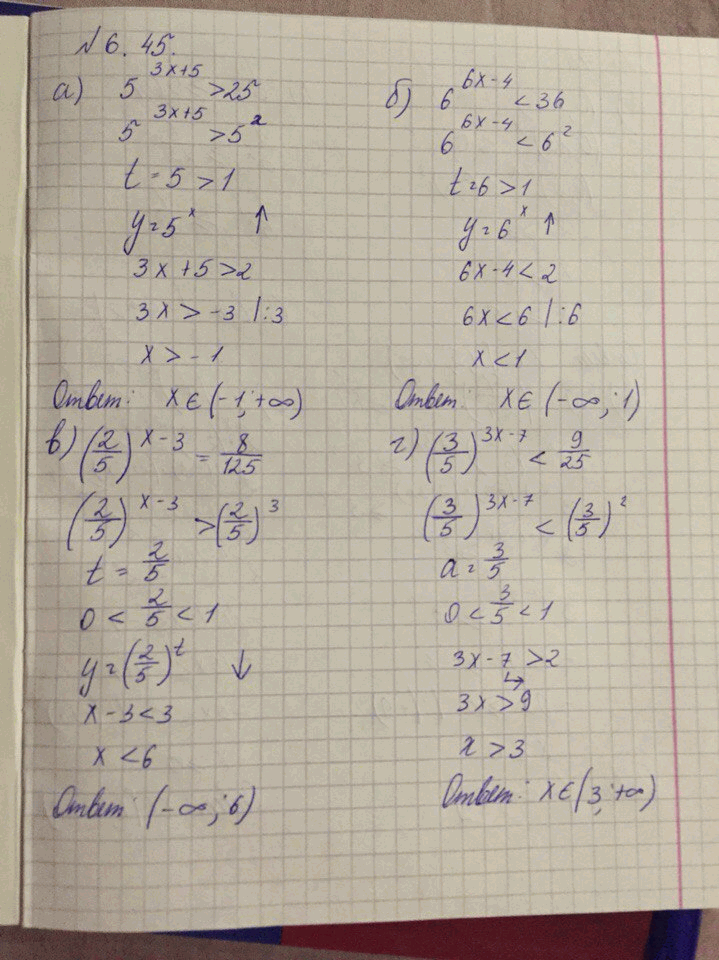 № 6. 45.
а) 5^(3x+5) > 25
5^(3x+5) > 5^2
t = 5 > 1
y = 5^x ↑
3x + 5 > 2
3x > -3 | :3
x > -1
Ответ: x ∈ (-1; +∞)
б) 6^(6x-4) < 36
6^(6x-4) < 6^2
t = 6 > 1
y = 6^x ↑
6x - 4 < 2
6x < 6 | :6
x < 1
Ответ: x ∈ (-∞; 1)
в) (2/5)^(x-3) = 8/125
(2/5)^(x-3) > (2/5)^3
t = 2/5
0 < 2/5 < 1
y = (2/5)^t ↓
x - 3 < 3
x < 6
Ответ: (-∞; 6)
г) (3/5)^(3x-7) < 9/25
(3/5)^(3x-7) < (3/5)^2
a = 3/5
0 < 3/5 < 1
3x - 7 > 2
3x > 9
x > 3
Ответ: x ∈ (3; +∞)